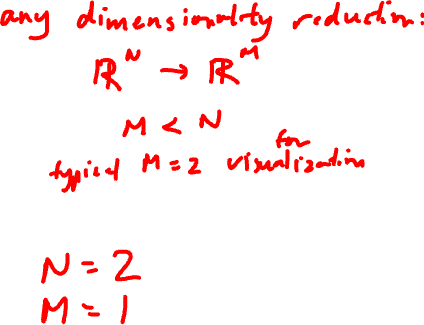 any dimensionality reduction:
ℝᴺ → ℝᴹ
M < N
typical M = 2 for visualization
N = 2
M = 1